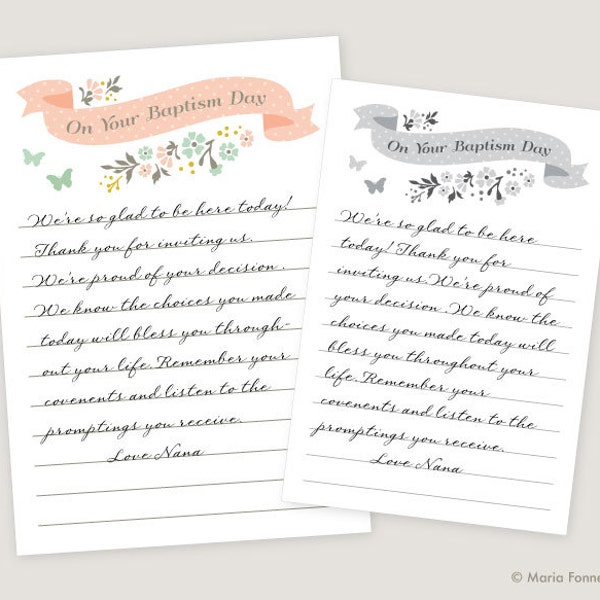 On Your Baptism Day
We're so glad to be here today!
Thank you for inviting us.
We're proud of your decision .
We know the choices you made
today will bless you through-
out your life. Remember your
covenents and listen to the
promptings you receive.
Love Nana
On Your Baptism Day
We're so glad to be here
today! Thank you for
inviting us. We're proud of
your decision . We know the
choices you made today will
bless you throughout your
life. Remember your
covenents and listen to the
promptings you receive.
Love Nana
© Maria Fonne